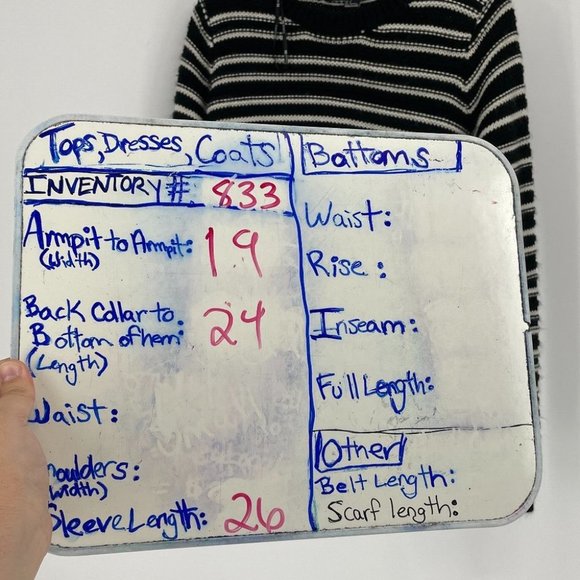 Tops, Dresses, Coats
INVENTORY #: 833
Armpit to Armpit: 19
(Width)
Back Collar to
Bottom of hem: 24
(Length)
Waist:
houlders:
Width)
Sleeve Length: 26
Bottoms
Waist:
Rise:
Inseam:
Full Length:
Other
Belt Length:
Scarf length: